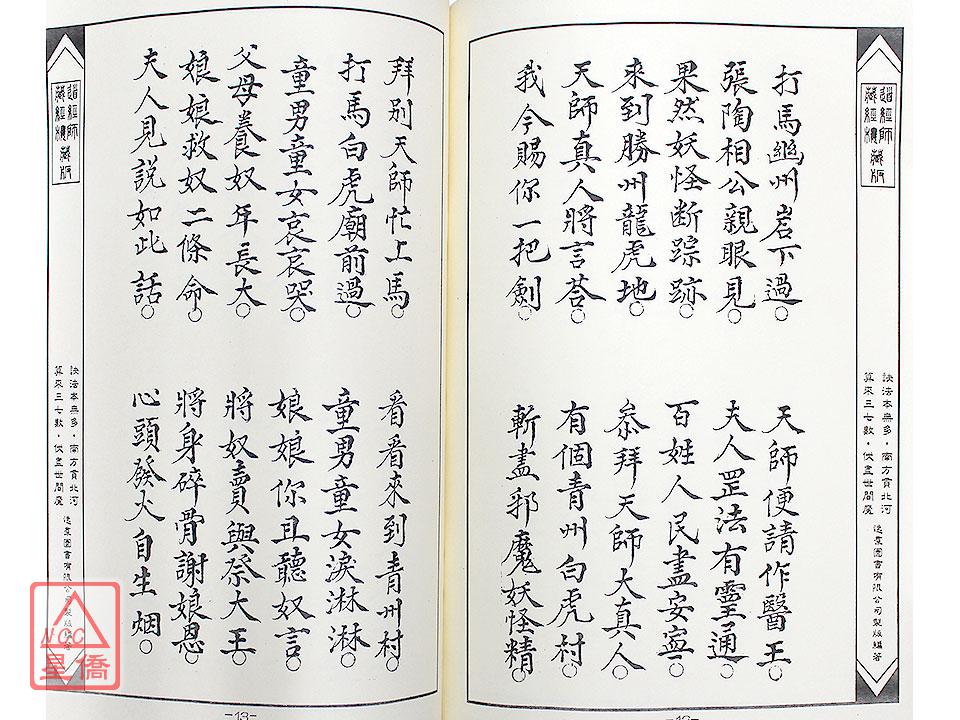 打馬幽州岩下過○ 天師便請作醫王○
張陶相公親眼見○ 夫人罡法有霊通○
果然妖怪断踪跡○ 百姓人民盡安寧○
來到勝州龍虎地○ 叅拜天師大真人○
天師真人將言荅○ 有個青州白虎村○
我今賜你一把劍○ 斬盡邪魔妖怪精○
拜别天師忙上馬○ 看看來到青州村○
打馬白虎廟前過○ 童男童女淚淋淋○
童男童女哀哀哭○ 娘娘你且聽奴言○
父母養奴年長大○ 將奴賣與祭大王○
娘娘救奴二條命○ 將身碎骨謝娘恩○
夫人見説如此話○ 心頭發火自生烟○
道經師
藏經樓藏版
訣法本無多，南方貫北河
算來三七數，伏盡世間魔
逸羣圖書有限公司製版編著
道經師
藏經樓藏版
訣法本無多，南方貫北河
算來三七數，伏盡世間魔
逸羣圖書有限公司製版編著
-13-
NCC
星僑